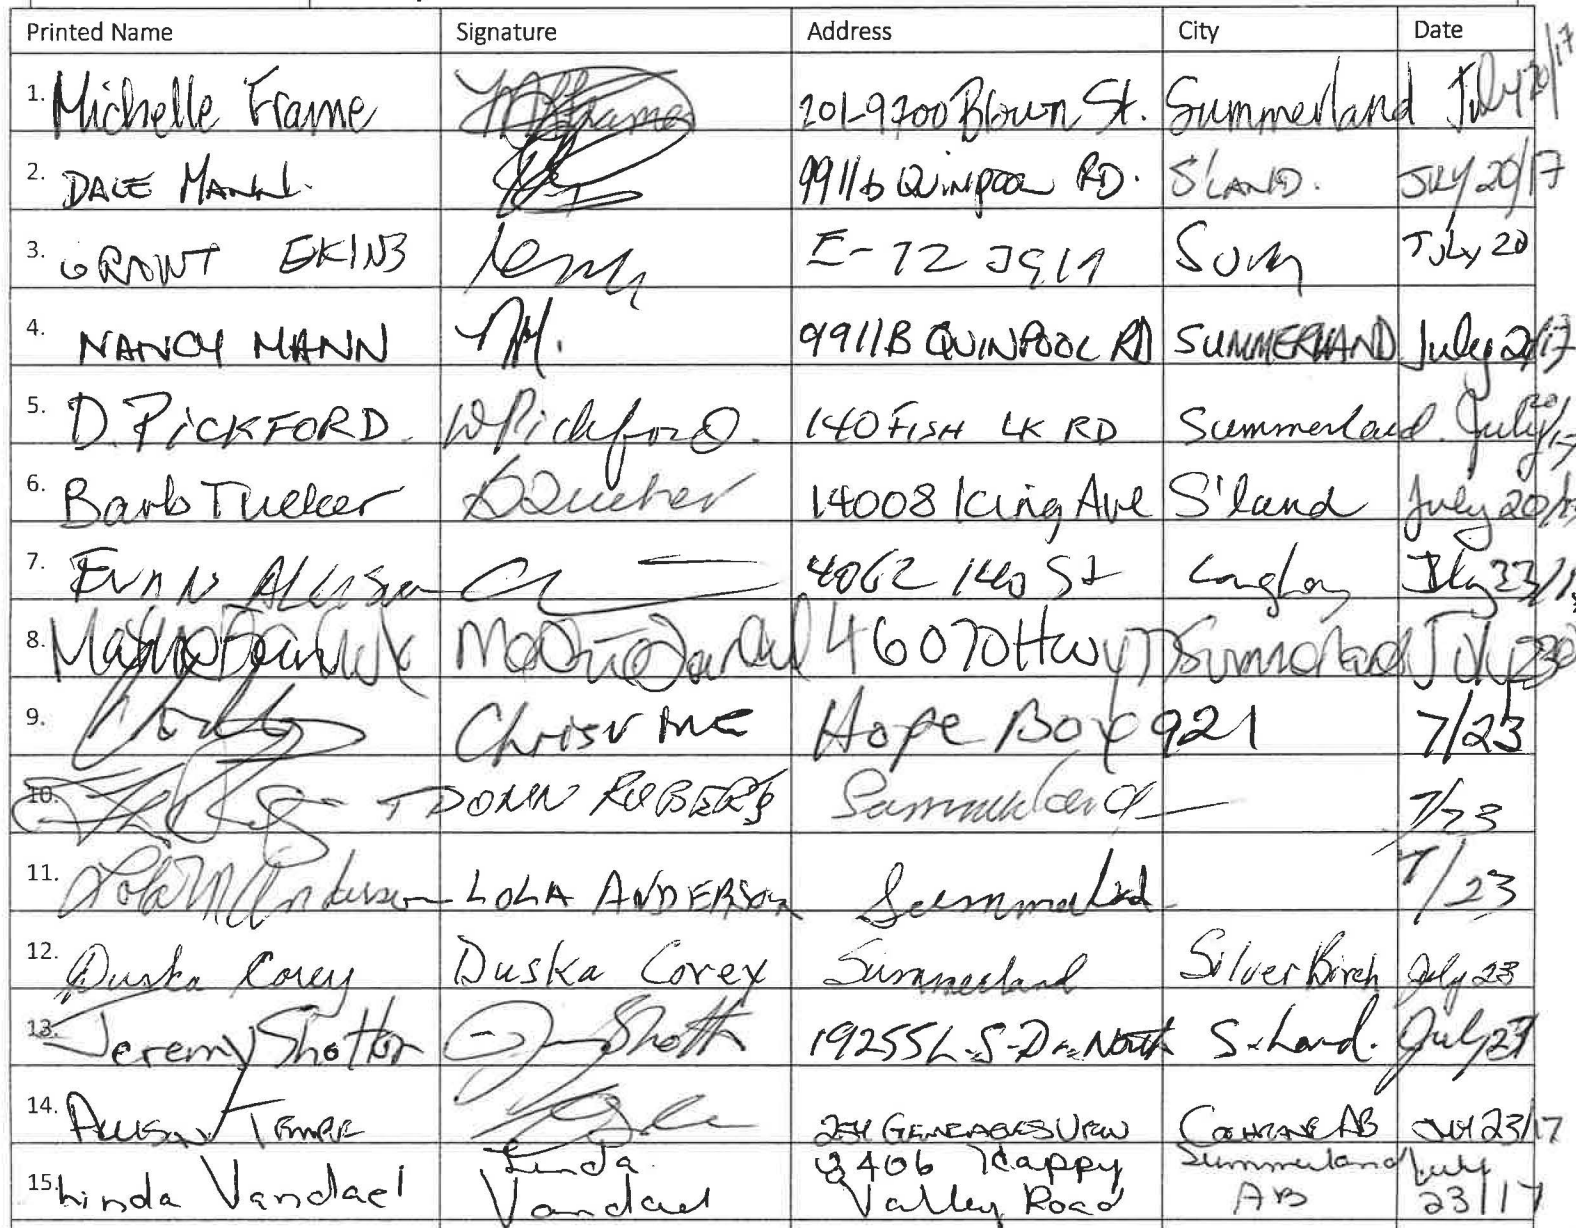 Printed Name Signature Address City Date
1. Michelle Frame 201-9700 Brown St. Summerland July 20/17
2. DALE MANN. 9911b QUINPOOL RD. S'LAND. JULY 20/17
3. GRANT EKINS July 20
4. NANCY MANN NM. 9911B QUINPOOL RD SUMMERLAND July 20/17
5. D. PICKFORD. DPickford. 140 FISH LK RD Summerland. July 20/17
6. Barb Tucker BTucker 14008 King Ave S'land July 20/17
7. EVAN ALLISON 4062 140 St Langley July 23/17
8. 46070 Hwy Summerland July 23
9. Hope Box 921 7/23
10. DONN ROBERTS Summerland 7/23
11. Lola M Anderson LOLA ANDERSON Summerland 7/23
12. Duska Corey Duska Corey Summerland Silver Birch July 23
13. Jeremy Shottor 19255 L.S-Dr. North S.Land. July 23
14. COCHRANE AB July 23/17
15. Linda Vandael Linda Vandael 3406 Happy Valley Road Summerland AB July 23/17